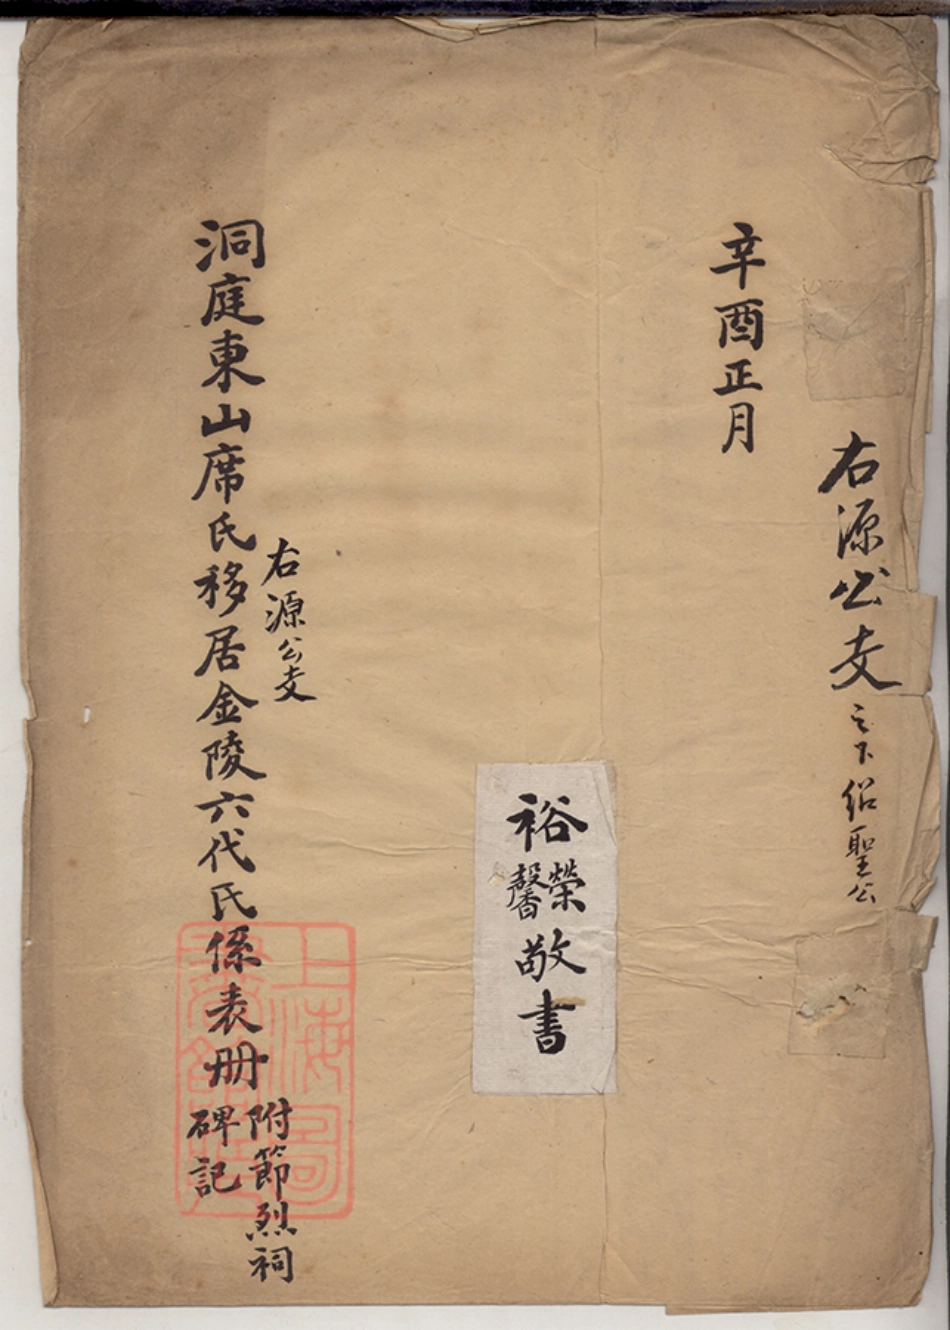 右源公支之下紹聖公
辛酉正月
裕榮馨敬書
右源公支
洞庭東山席氏移居金陵六代氏係表册
附節烈祠
碑記
上海圖
書館藏